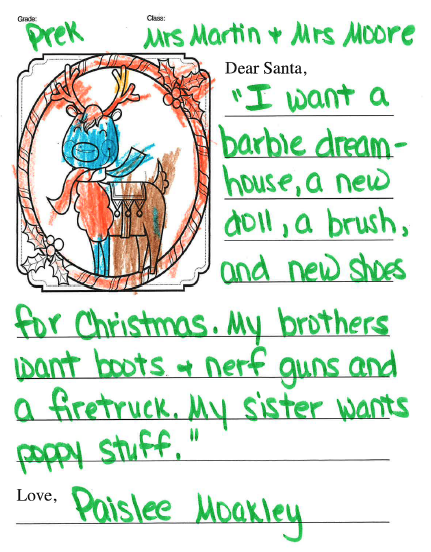 Grade: Class:
Prek Mrs Martin + Mrs Moore
Dear Santa,
"I want a
barbie dream-
house, a new
doll, a brush,
and new shoes
for Christmas. My brothers
want boots + nerf guns and
a firetruck. My sister wants
poppy stuff."
Love, Paislee Moakley